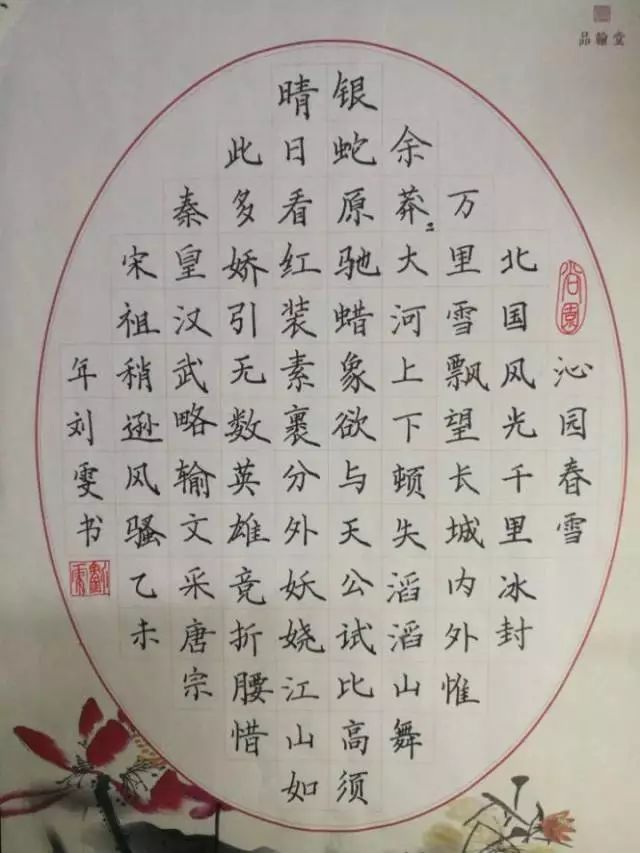 品翰堂
沁园春雪
北国风光千里冰封
万里雪飘望长城内外惟
余莽〻大河上下顿失滔滔山舞
银蛇原驰蜡象欲与天公试比高须
晴日看红装素裹分外妖娆江山如
此多娇引无数英雄竞折腰惜
秦皇汉武略输文采唐宗
宋祖稍逊风骚乙未
年刘雯书
劉雯